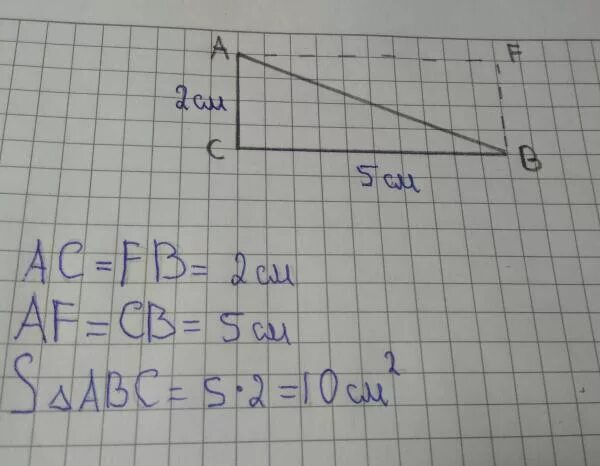 A F
2см
C B
5 см
AC = FB = 2 см
AF = CB = 5 см
S △ABC = 5·2 = 10 см²